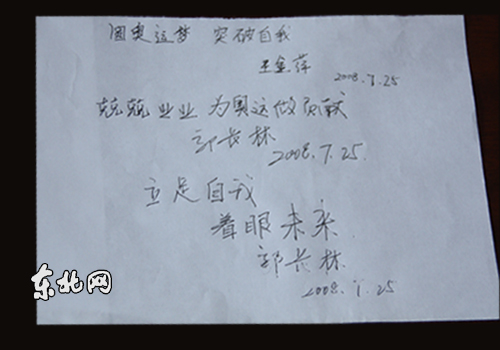 圆奥运梦 突破自我
王金萍
2008.7.25
兢兢业业 为奥运做贡献
郭长林
2008.7.25.
立足自我
着眼未来
郭长林
2008.7.25
东北网